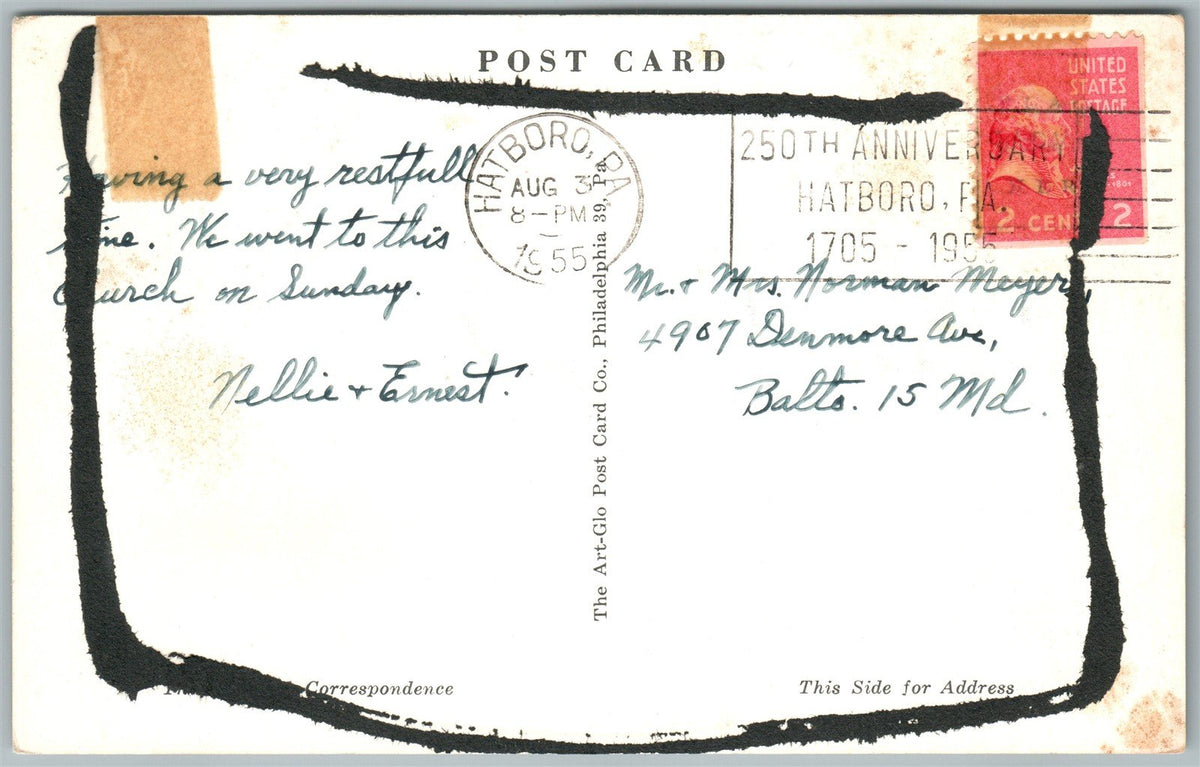 POST CARD
UNITED
STATES
POSTAGE
2 CENTS 2
HATBORO, PA.
AUG 3
8-PM
1955
250TH ANNIVERSARY
HATBORO, PA.
1705 - 1955
Having a very restfull
time. We went to this
Church on Sunday.
Nellie + Ernest.
The Art-Glo Post Card Co., Philadelphia 39, Pa.
Mr. + Mrs. Norman Meyer,
4907 Denmore Ave,
Balto. 15 Md.
Correspondence
This Side for Address